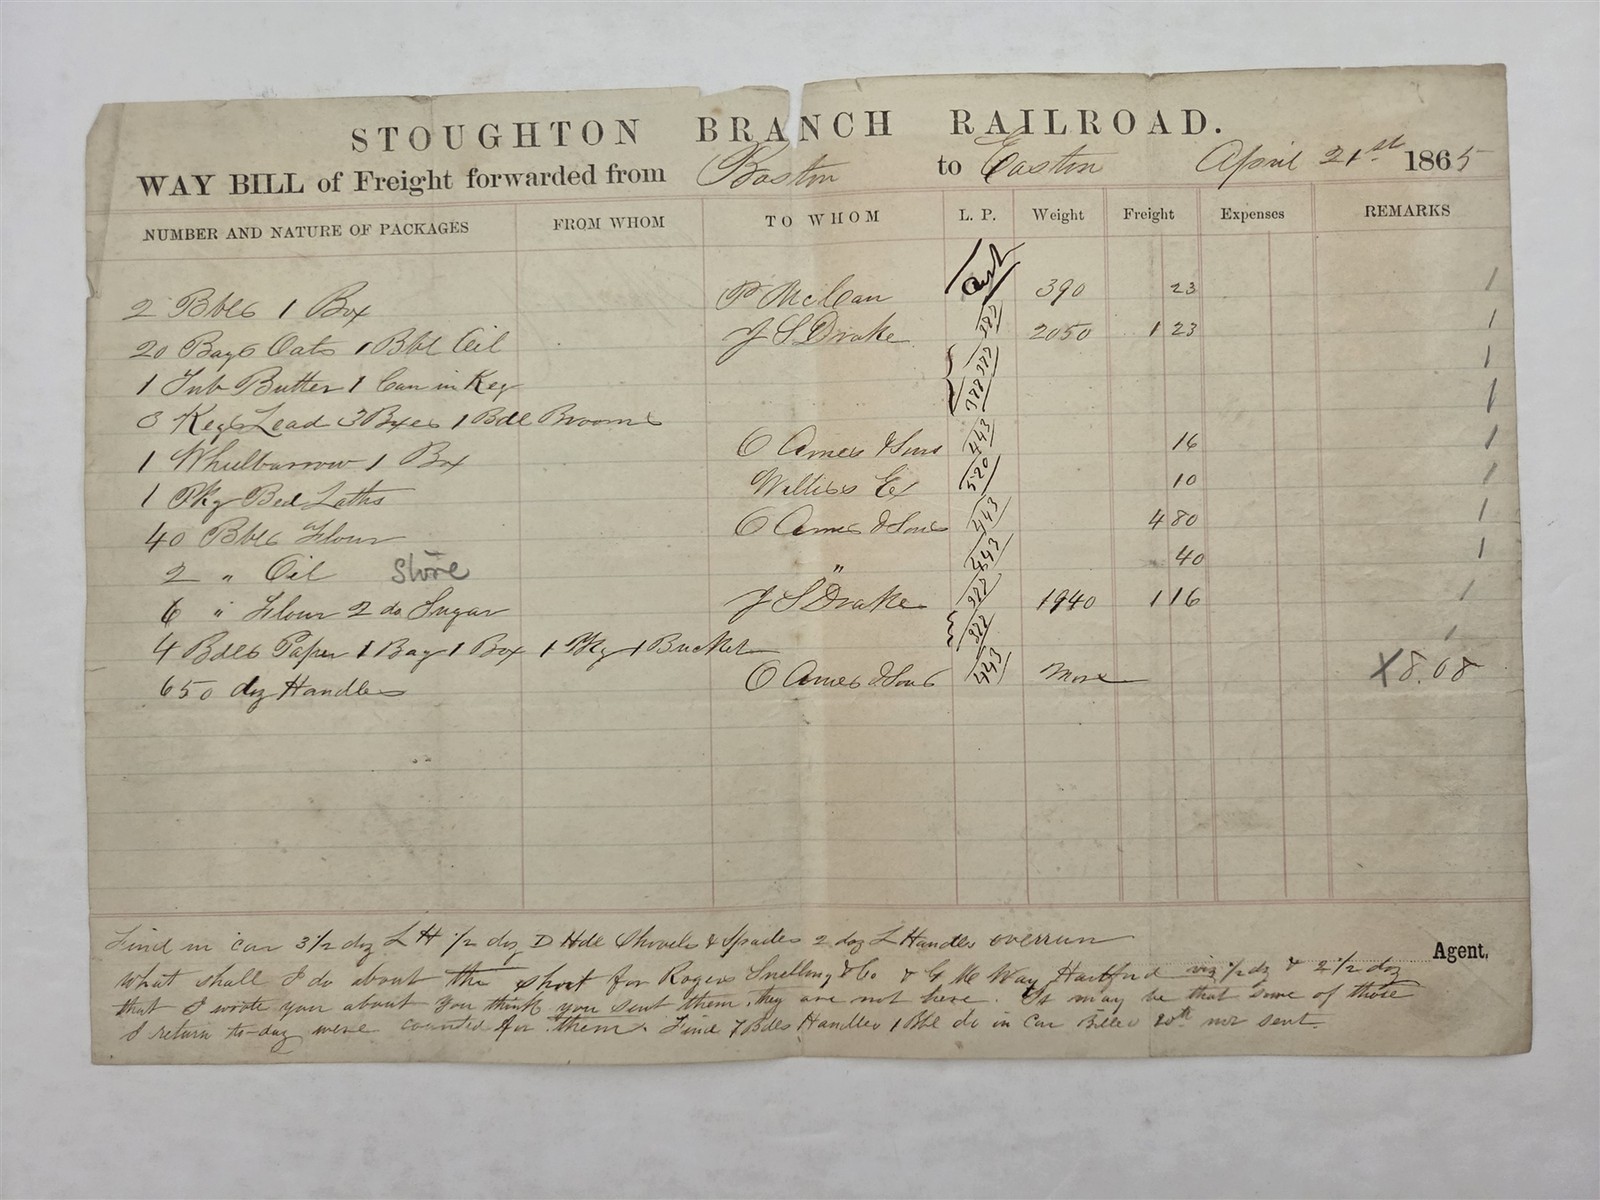 STOUGHTON BRANCH RAILROAD.
WAY BILL of Freight forwarded from Boston to Easton April 21st 1865
NUMBER AND NATURE OF PACKAGES FROM WHOM TO WHOM L. P. Weight Freight Expenses REMARKS
2 Bbls 1 Box P McCan 390 23 1
20 Bags Oats 1 Bbl Oil J S Drake 387 2050 1 23 1
1 Tub Butter 1 Can in Keg 1
3 Kegs Lead 3 Bxes 1 Bdl Brooms 1
1 Whielbarrow 1 Box O Ames & Sons 443 16 1
1 Pkg Bed Laths Ex 520 10 1
40 Bbls Flour O Ames & Sons 443 4 80 1
2 " Oil Store " 443 40 1
6 " Flour 2 do Sugar J S Drake 1940 1 16 1
4 Bdls Paper 1 Bag 1 Box 1 Pkg 1 Bucket 1
650 doz Handles O Ames & Sons 443 More X 8.08
Find in car 3 1/2 doz L H 1/2 doz D Hdl Shovels & Spades 2 doz L Handles overrun
Agent.
What shall I do about the short for Rogers Snelling & Co & G M Way Hartford viz 1/2 dz & 2 1/2 doz
that I wrote you about You think you sent them, they are not here. It may be that some of those
I return to-day were counted for them. Find 7 Bdls Handles 1 Bbl do in car Billed 20th not sent.